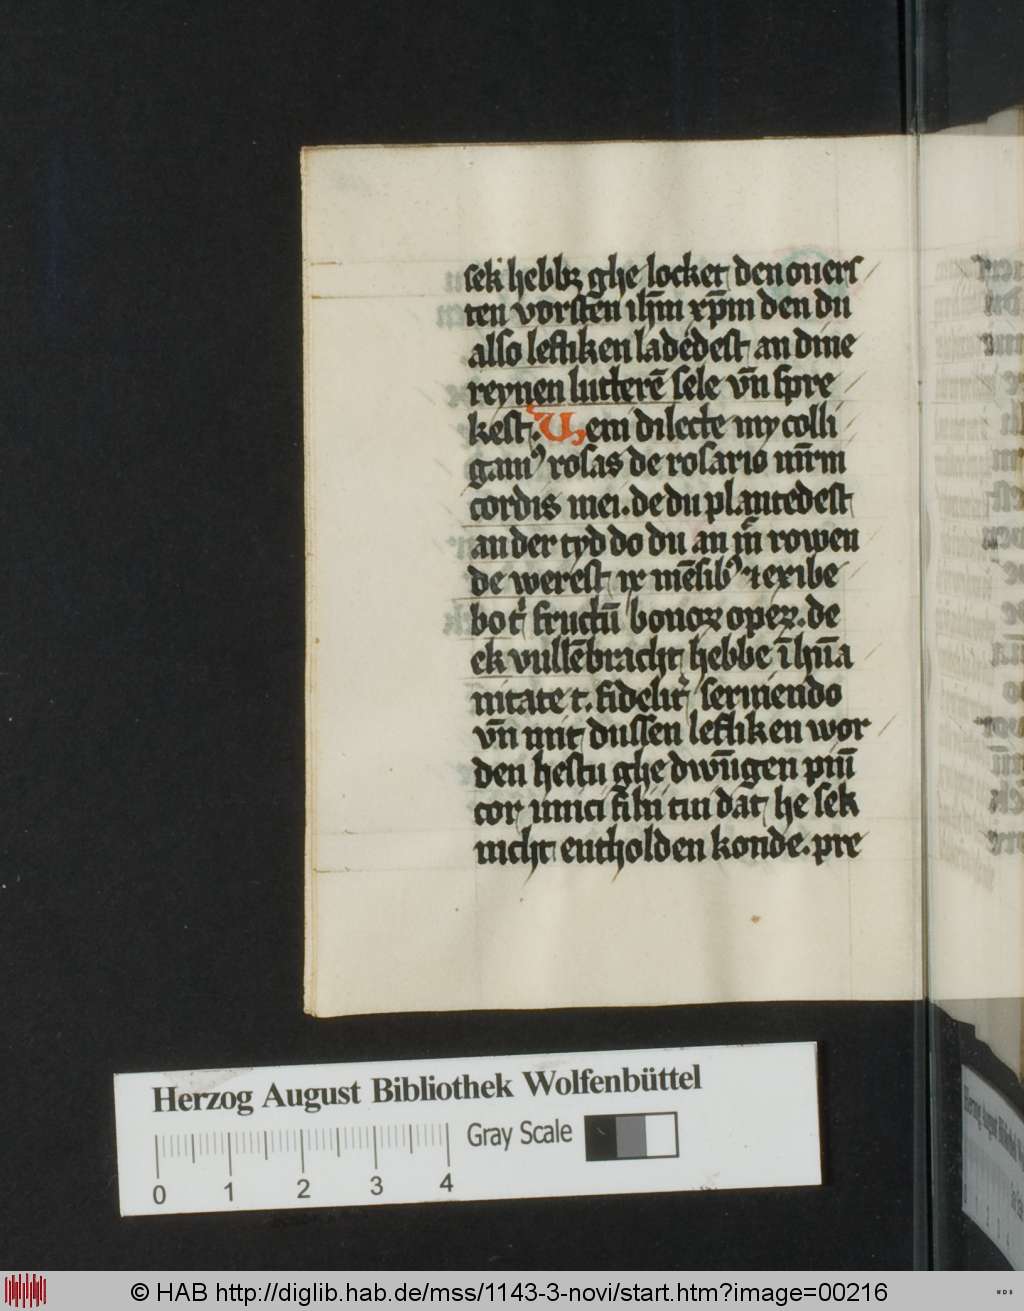 sek hebbꝫ ghe locket den ouers
ten vorsten ih̄m xp̄m den du
also lefliken ladedest an dine
reynen lutterē sele vn̄ spre
kest. Ueni dilecte my colli
gamꝰ rosas de rosario nr̄m
cordis mei. de du plantedest
an der tyd do du an m̄ rowen
de werest ix mēsibꝰ ⁊ exibe
bo t͛ fructū bonoꝝ opeꝝ. de
ek vullēbracht hebbe ī hūa
nitate t. fidelit͛ seruiendo
vn̄ mit dussen lefliken wor
den hestu ghe dwūgen piū
cor unici filii tui dat he sek
nicht entholden konde. pre
Herzog August Bibliothek Wolfenbüttel
Gray Scale
0 1 2 3 4
© HAB http://diglib.hab.de/mss/1143-3-novi/start.htm?image=00216